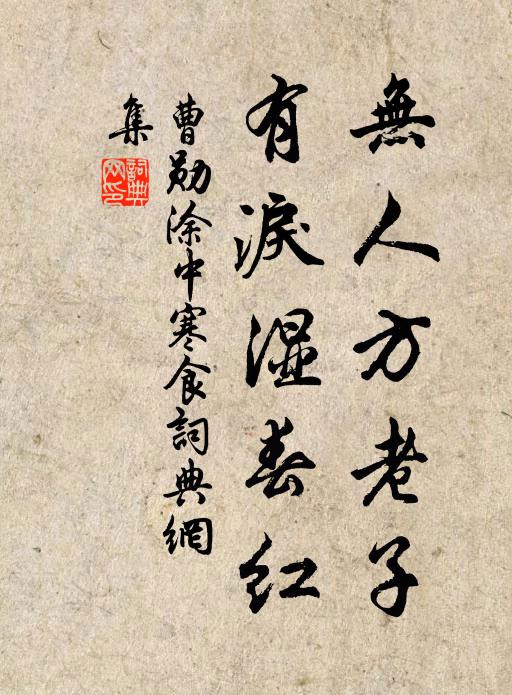 無人方老子
有淚濕春紅
曹勛涂中寒食詞典網
集
詞典網印